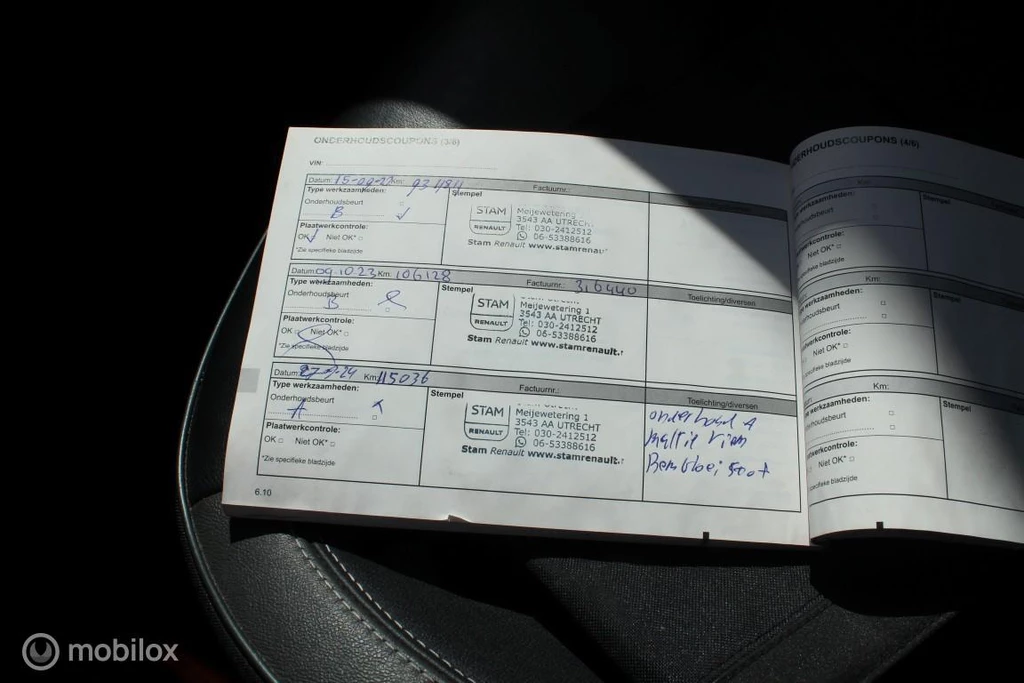 ONDERHOUDSCOUPONS (3/6)
VIN:
Datum: 15-09-22 Km: Factuurnr.:
Type werkzaamheden: Stempel
Onderhoudsbeurt
B
Plaatwerkcontrole:
OK Niet OK*
*Zie specifieke bladzijde
STAM
RENAULT
Meijewetering 1
3543 AA UTRECHT
Tel: 030-2412512
06-53388616
Stam Renault www.stamrenau
Datum: 09.10.23 Km: 106128 Factuurnr.: 310440 Toelichting/diversen
Type werkzaamheden: Stempel
Onderhoudsbeurt
B
Plaatwerkcontrole:
OK Niet OK*
*Zie specifieke bladzijde
STAM
RENAULT
Meijewetering 1
3543 AA UTRECHT
Tel: 030-2412512
06-53388616
Stam Renault www.stamrenault.
Datum: Km: 115036 Factuurnr.: Toelichting/diversen
Type werkzaamheden: Stempel
Onderhoudsbeurt
A
Plaatwerkcontrole:
OK Niet OK*
*Zie specifieke bladzijde
STAM
RENAULT
Meijewetering 1
3543 AA UTRECHT
Tel: 030-2412512
06-53388616
Stam Renault www.stamrenault.
6.10
DERHOUDSCOUPONS (4/6)
Km:
werkzaamheden: Stempel
houdsbeurt
werkcontrole:
Niet OK*
bladzijde
Km:
werkzaamheden: Stempel
houdsbeurt
werkcontrole:
Niet OK*
specifieke bladzijde
Km:
werkzaamheden: Stempel
derhoudsbeurt
werkcontrole:
Niet OK*
specifieke bladzijde
mobilox